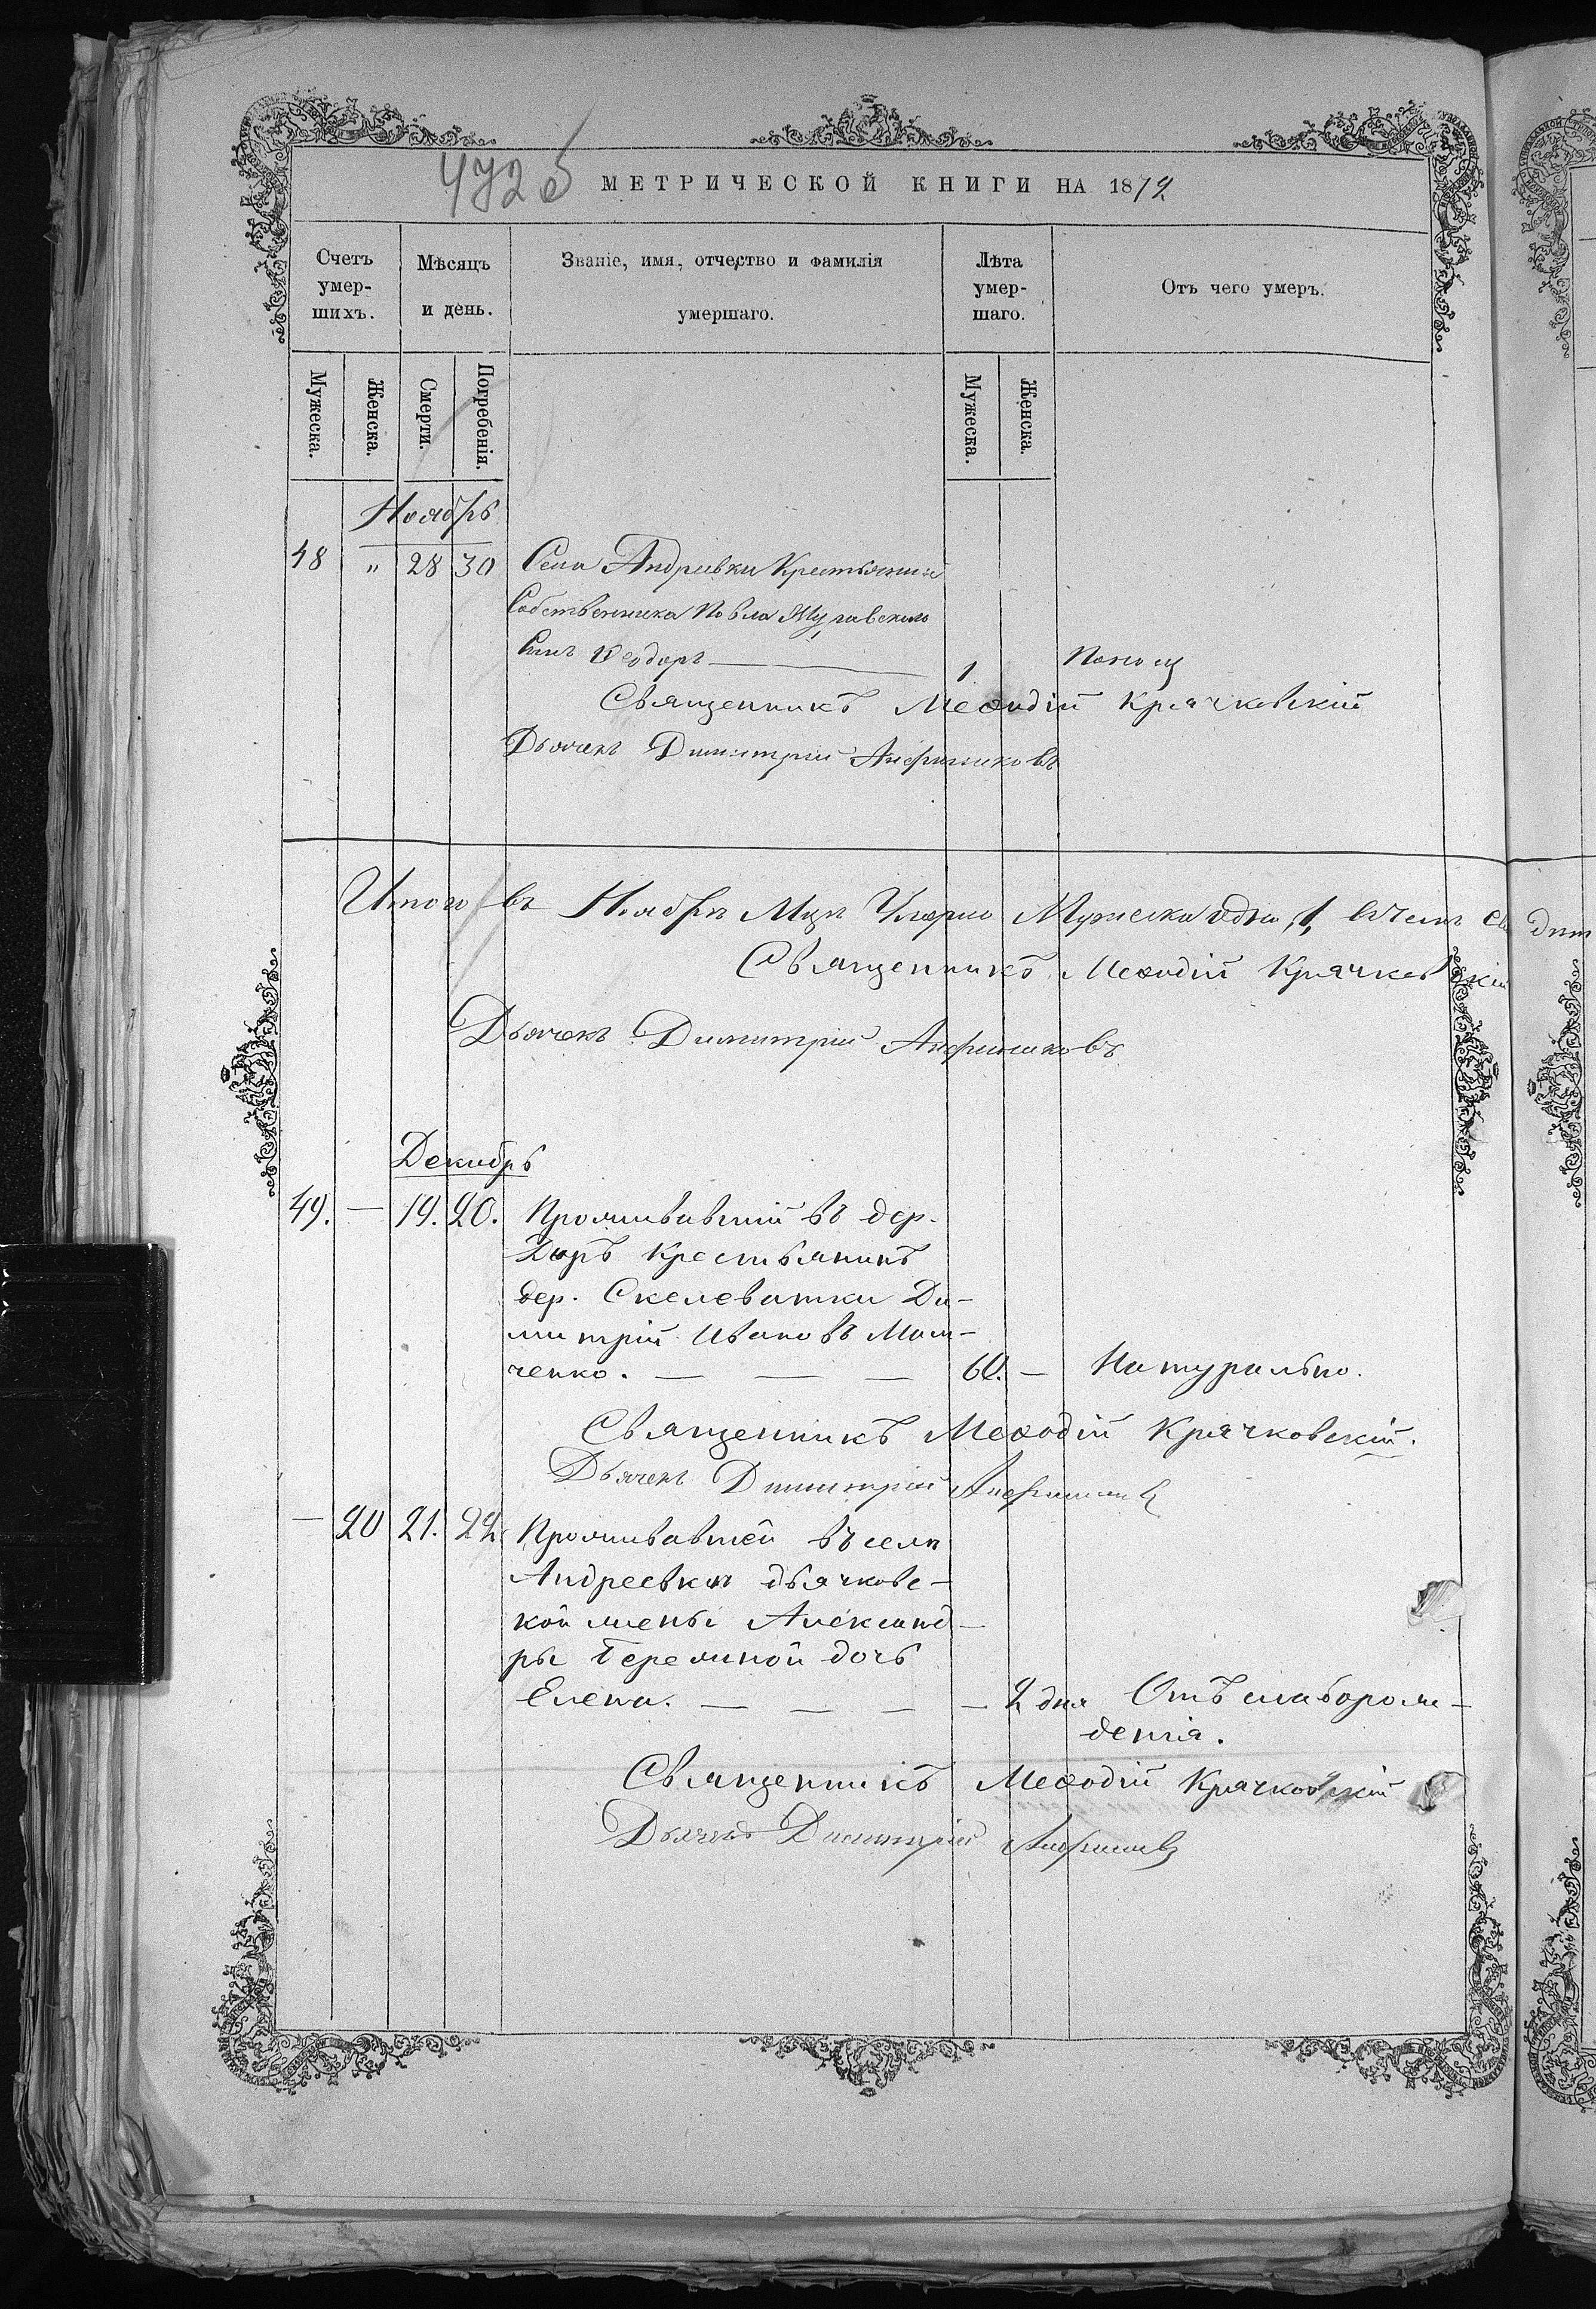 МЕТРИЧЕСКОЙ КНИГИ НА 1872
Счетъ умер-шихъ.
Мѣсяцъ и день.
Званіе, имя, отчество и фамилія умершаго.
Лѣта умер-шаго.
Отъ чего умеръ.
Мужеска.
Женска.
Смерти.
Погребенія.
Мужеска.
Женска.
Ноябрь
48 " 28 30 Села Андреевки Крестьянина
Собственника Павла
Сынъ Ѳеодоръ 1 Поносъ
Священникъ Меѳодій Крячковскій
Дьячекъ Димитрій
Итого въ Ноябрѣ Мцѣ Умерло Мужеска одна 1, въ чемъ
Священникъ Меѳодій Крячковскій
Дьячекъ Димитрій
Декабрь
49. — 19. 20. Проживавшій въ дер.
крестьянинъ
дер. Скелеватки Ди-
митрій Ивановъ
ченко. — — — 60. — Натурально.
Священникъ Меѳодій Крячковскій.
Дьячекъ Димитрій
— 20 21. 22. Проживавшей въ селѣ
Андреевкѣ дьячковс-
кой жены Александ-
ры дочь
Елена. — — — — 2 дня Отъ слаборож-
денія.
Священникъ Меѳодій Крячковскій
Дьячекъ Димитрій